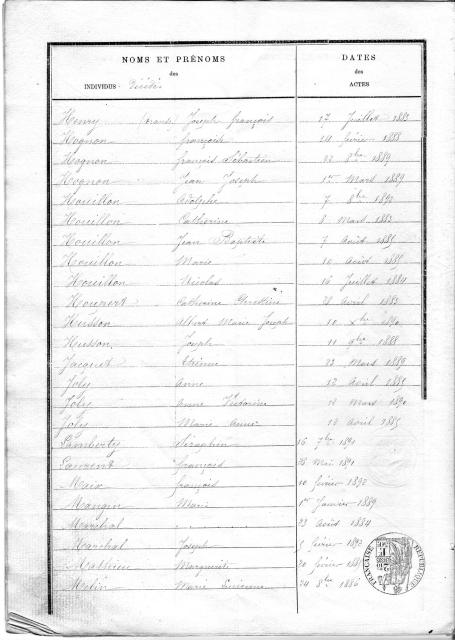 NOMS ET PRÉNOMS
des
INDIVIDUS Décédés
DATES
des
ACTES
Henry Joseph françois 17 Juillet 1883
Hognon françois 14 février 1888
Hognon françois Sébastien 22 1889
Hognon Jean Joseph 1er Mars 1889
Houillon Adolphe 7 8bre 1892
Houillon Catherine 8 Mars 1883
Houillon Jean Baptiste 7 Août 1885
Houillon Marie 10 Août 1885
Houillon Nicolas 16 Juillet 1884
Houpert Catherine Christine 28 Avril 1883
Husson Albert Marie Joseph 10 Xbre 1890
Husson Joseph 11 9bre 1888
Jacquot Etienne 23 Mars 1889
Joly Anne 12 Avril 1885
Joly Anne Victorine Mars 1890
Joly Marie Anne 10 Avril 1885
Lamberty Séraphin 16 7bre 1891
Laurent françois 28 Mai 1891
Maix françois 10 février 1892
Mangin Marie 1er Janvier 1889
Maréchal 23 Août 1884
Maréchal Joseph 5 février 1892
Mathieu Marguerite 20 février 1881
Metin Marie 24 8bre 1886
RÉPUBLIQUE FRANÇAISE